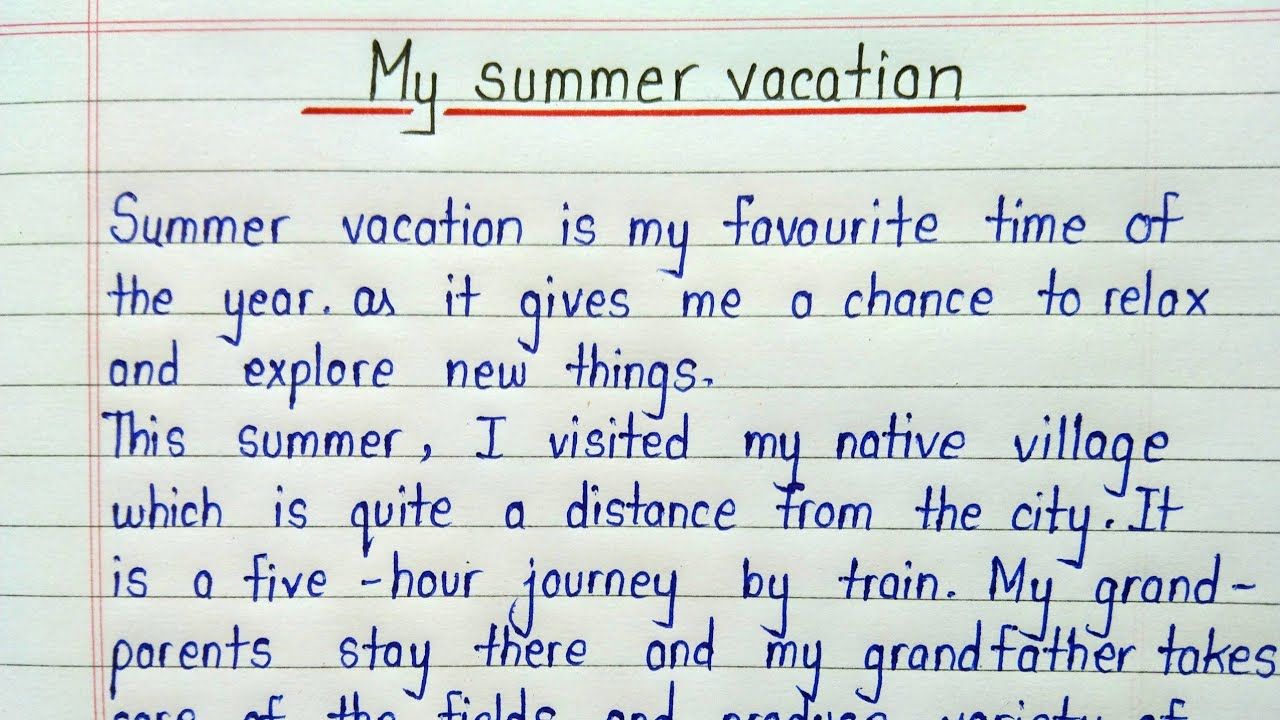 My summer vacation
Summer vacation is my favourite time of
the year. as it gives me a chance to relax
and explore new things.
This summer, I visited my native village
which is quite a distance from the city. It
is a five-hour journey by train. My grand-
parents stay there and my grandfather takes
care of the fields and produce variety of